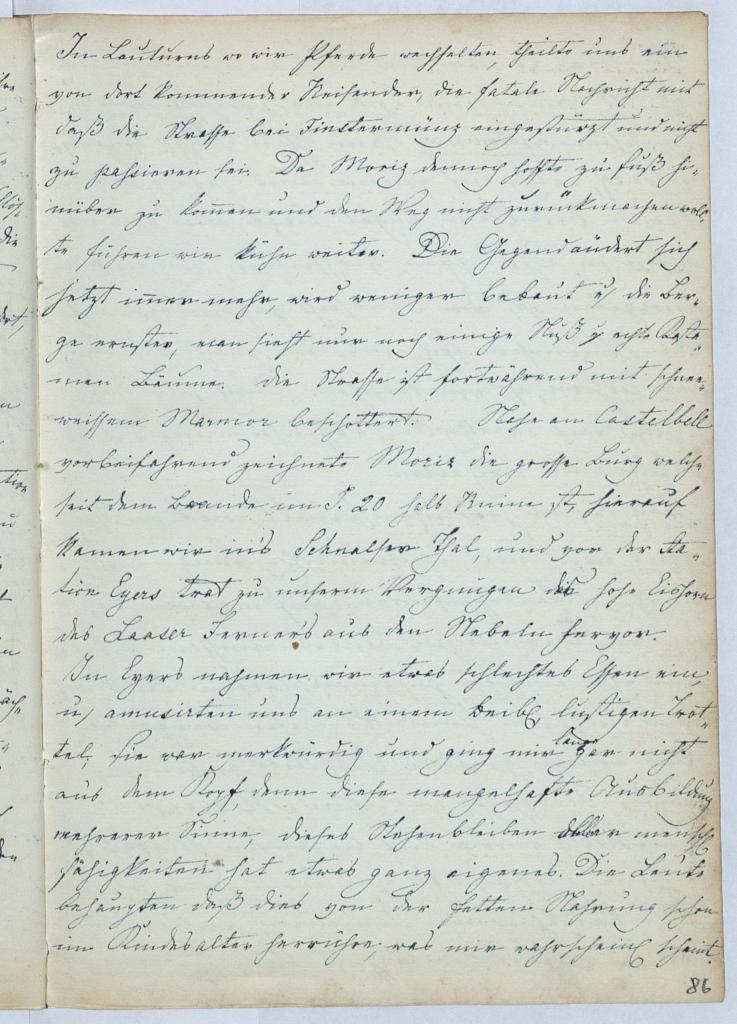 In Lauturns wo wir Pferde wechselten, theilte uns ein
von dort kommender Reisender, die fatale Nachricht mit
daß die Strasse bei Finstermünz eingestürzt und nicht
zu passieren sei. Da Moriz dennoch hoffte zu fuß hi-
nüber zu kommen und den Weg nicht zurückmachen woll-
te fuhren wir kühn weiter. Die Gegend ändert sich
jetzt immer mehr, wird weniger bebaut u/ die Ber-
ge ernster, man sieht nur noch einige Nuß u echte Kasta-
nien Bäume. die Strasse ist fortwährend mit schnee-
weissem Marmor beschottert. Nahe an Castelbell
vorbeifahrend zeichnete Moriz die grosse Burg welche
seit dem Brande im J. 20 halb Ruine ist, hierauf
kamen wir in's Schnalser Thal, und vor der Sta-
tion Eyers trat zu unserm Vergnügen das hohe Eishorn
des Laaser Ferner's aus den Nebeln hervor.
In Eyers nahmen wir etwas schlechtes Essen ein,
u/ amusirten uns an einem weibl. lustigen Trot-
tel, sie war merkwürdig und ging mir lange gar nicht
aus dem Kopf, denn diese mangelhafte Ausbildung
mehrerer Sinne, dieses Stehenbleiben aller menschl.
fähigkeiten hat etwas ganz eigenes. Die Leute
behaupten daß dies von der fetten Nahrung schon
im Kindesalter herrühre, was mir wahrscheinl. scheint.
86